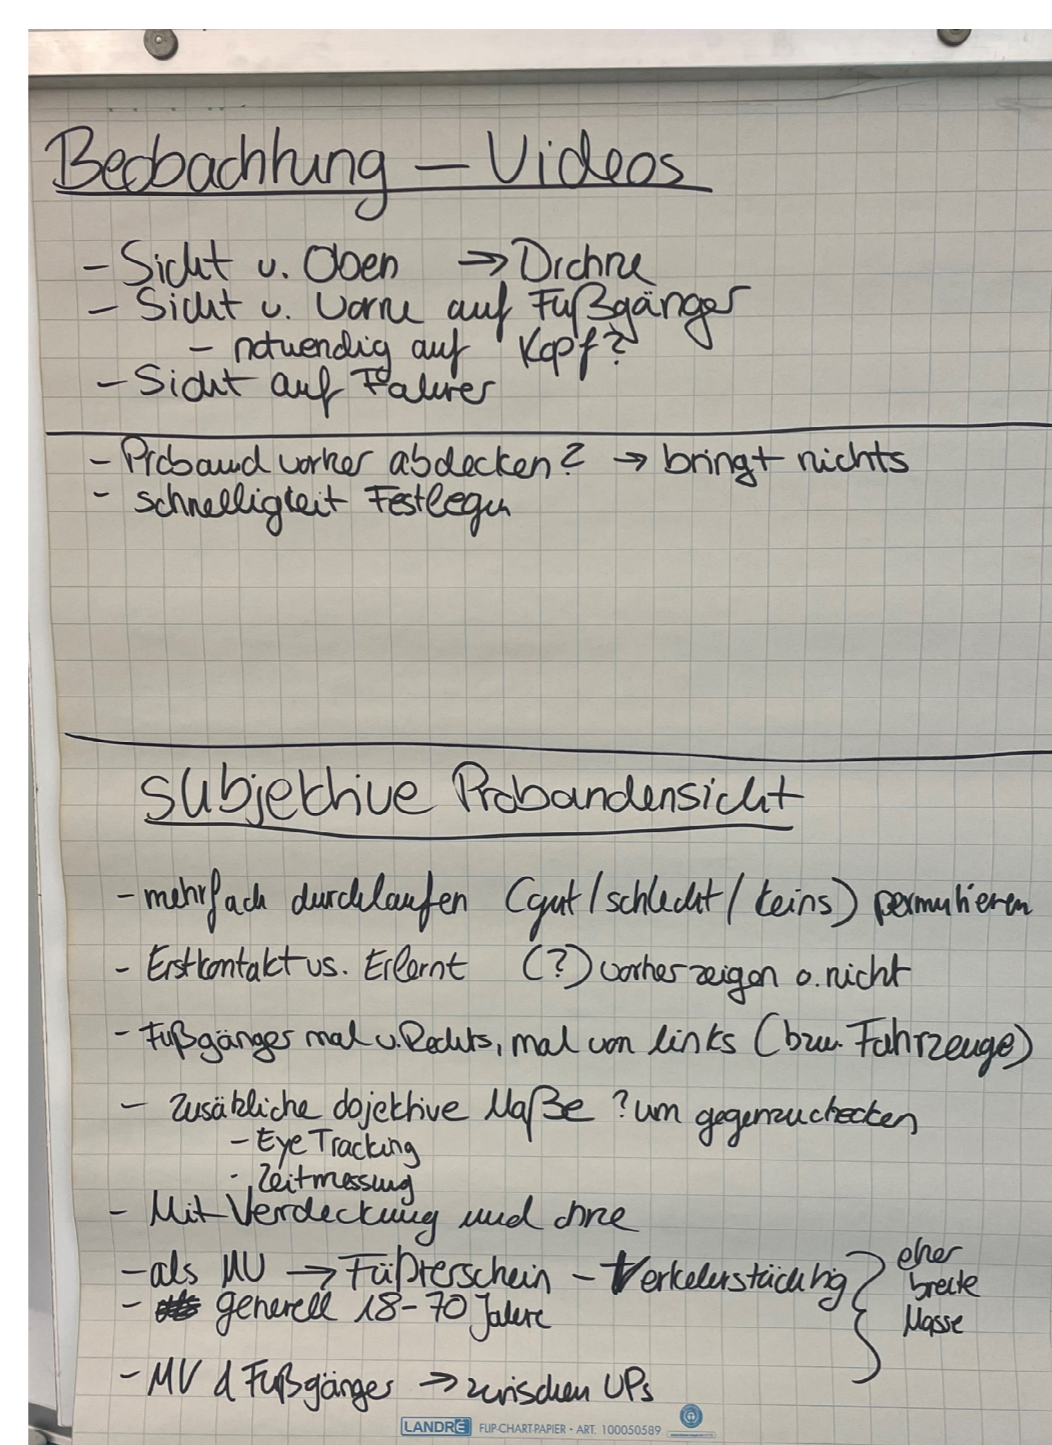 Beobachtung – Videos
- Sicht v. Oben → Drohne
- Sicht v. Vorne auf Fußgänger
- notwendig auf Kopf?
- Sicht auf Fahrer
- Proband vorher abdecken? → bringt nichts
- schnelligkeit Festlegen
Subjektive Probandensicht
- mehrfach durchlaufen (gut / schlecht / keins) permutieren
- Erstkontakt vs. Erlernt (?) vorher zeigen o. nicht
- Fußgänger mal v. Rechts, mal von links (bzw. Fahrzeuge)
- Zusätzliche objektive Maße ? um gegenzuchecken
- Eye Tracking
- Zeitmessung
- Mit Verdeckung und ohne
- als MV → Führerschein – Verkehrstüchtig } eher
- generell 18-70 Jahre breite
Masse
- MV & Fußgänger → zwischen VPs
LANDRÉ FLIP-CHART-PAPIER • ART. 100050589